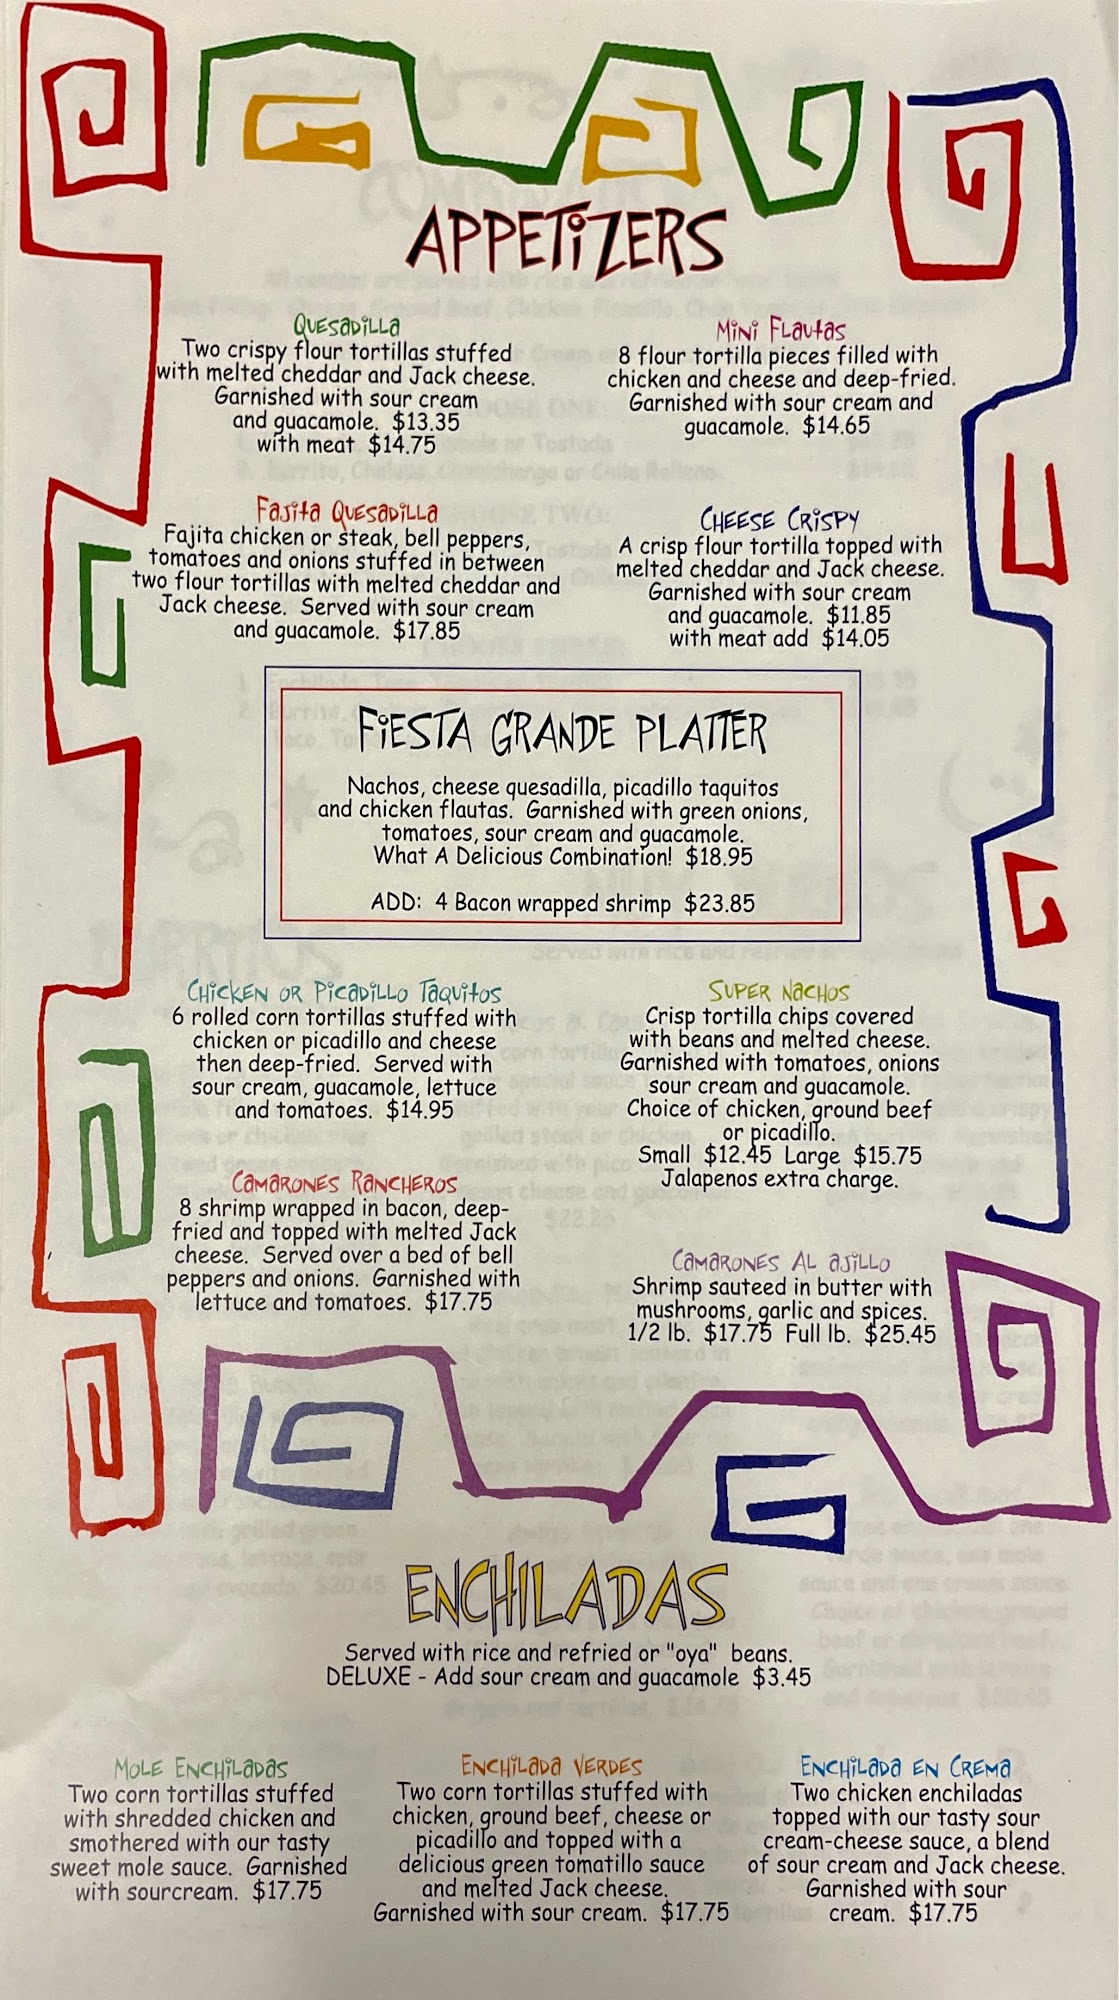 APPETIZERS
Quesadilla
Two crispy flour tortillas stuffed
with melted cheddar and Jack cheese.
Garnished with sour cream
and guacamole. $13.35
with meat $14.75
Mini Flautas
8 flour tortilla pieces filled with
chicken and cheese and deep-fried.
Garnished with sour cream and
guacamole. $14.65
Fajita Quesadilla
Fajita chicken or steak, bell peppers,
tomatoes and onions stuffed in between
two flour tortillas with melted cheddar and
Jack cheese. Served with sour cream
and guacamole. $17.85
Cheese Crispy
A crisp flour tortilla topped with
melted cheddar and Jack cheese.
Garnished with sour cream
and guacamole. $11.85
with meat add $14.05
FIESTA GRANDE PLATTER
Nachos, cheese quesadilla, picadillo taquitos
and chicken flautas. Garnished with green onions,
tomatoes, sour cream and guacamole.
What A Delicious Combination! $18.95
ADD: 4 Bacon wrapped shrimp $23.85
Chicken or Picadillo Taquitos
6 rolled corn tortillas stuffed with
chicken or picadillo and cheese
then deep-fried. Served with
sour cream, guacamole, lettuce
and tomatoes. $14.95
Super Nachos
Crisp tortilla chips covered
with beans and melted cheese.
Garnished with tomatoes, onions
sour cream and guacamole.
Choice of chicken, ground beef
or picadillo.
Small $12.45 Large $15.75
Jalapenos extra charge.
Camarones Rancheros
8 shrimp wrapped in bacon, deep-
fried and topped with melted Jack
cheese. Served over a bed of bell
peppers and onions. Garnished with
lettuce and tomatoes. $17.75
Camarones Al Ajillo
Shrimp sauteed in butter with
mushrooms, garlic and spices.
1/2 lb. $17.75 Full lb. $25.45
ENCHILADAS
Served with rice and refried or "oya" beans.
DELUXE - Add sour cream and guacamole $3.45
Mole Enchiladas
Two corn tortillas stuffed
with shredded chicken and
smothered with our tasty
sweet mole sauce. Garnished
with sourcream. $17.75
Enchilada Verdes
Two corn tortillas stuffed with
chicken, ground beef, cheese or
picadillo and topped with a
delicious green tomatillo sauce
and melted Jack cheese.
Garnished with sour cream. $17.75
Enchilada en Crema
Two chicken enchiladas
topped with our tasty sour
cream-cheese sauce, a blend
of sour cream and Jack cheese.
Garnished with sour
cream. $17.75